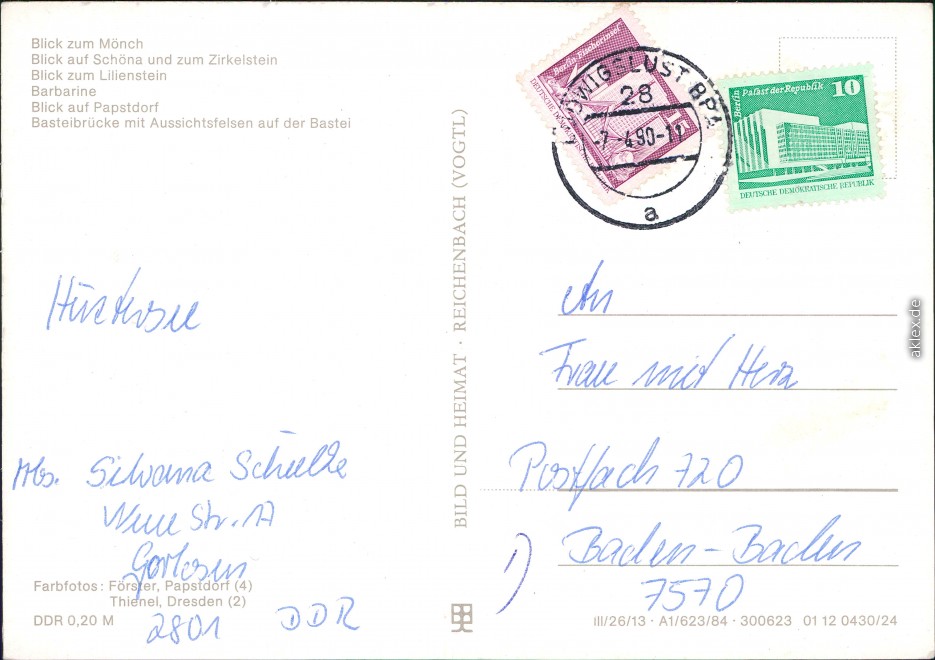 Blick zum Mönch
Blick auf Schöna und zum Zirkelstein
Blick zum Lilienstein
Barbarine
Blick auf Papstdorf
Basteibrücke mit Aussichtsfelsen auf der Bastei
Abs. Silvana Schulze
Neue Str. 17
Gorlosen
2801 DDR
Farbfotos: Förster, Papstdorf (4)
Thienel, Dresden (2)
DDR 0,20 M
BILD UND HEIMAT · REICHENBACH (VOGTL)
Berlin Fischerinsel
DEUTSCHE DEMOKRATISCHE
LUDWIGSLUST BPA
28
-7.-4.90-11
a
Berlin Palast der Republik 10
DEUTSCHE DEMOKRATISCHE REPUBLIK
An
Frau mit Herz
Postfach 720
1) Baden-Baden
7570
III/26/13 · A1/623/84 · 300623 01 12 0430/24
aklex.de